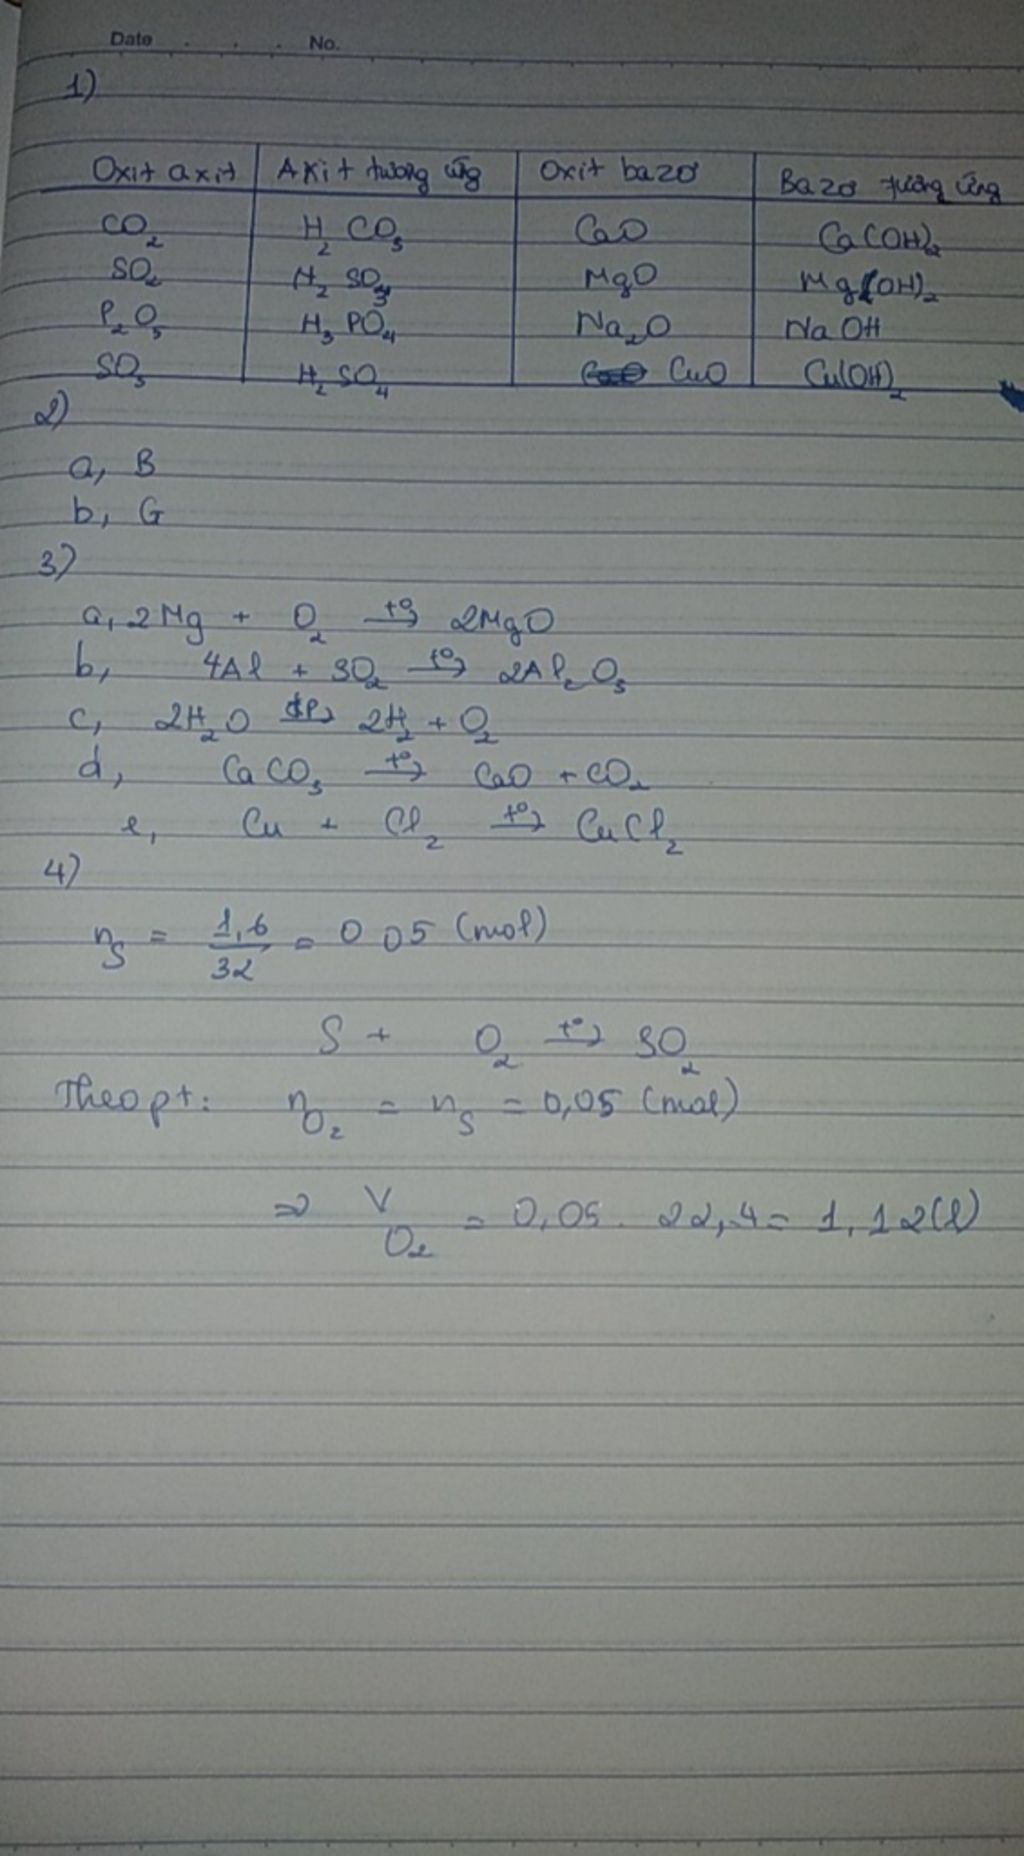 Date . . . No.
1)
Oxit axit Axit tương ứng Oxit bazơ Bazơ tương ứng
CO₂ H₂CO₃ CaO Ca(OH)₂
SO₂ H₂SO₃ MgO Mg(OH)₂
P₂O₅ H₃PO₄ Na₂O NaOH
SO₃ H₂SO₄ CuO Cu(OH)₂
2)
a, B
b, G
3)
a, 2Mg + O₂ –t°→ 2MgO
b, 4Al + 3O₂ –t°→ 2Al₂O₃
c, 2H₂O –đp→ 2H₂ + O₂
d, CaCO₃ –t°→ CaO + CO₂
e, Cu + Cl₂ –t°→ CuCl₂
4)
n_S = 1,6/32 = 0 05 (mol)
S + O₂ –t°→ SO₂
Theo pt: n_O₂ = n_S = 0,05 (mol)
⇒ V_O₂ = 0,05 . 22,4 = 1,12 (l)